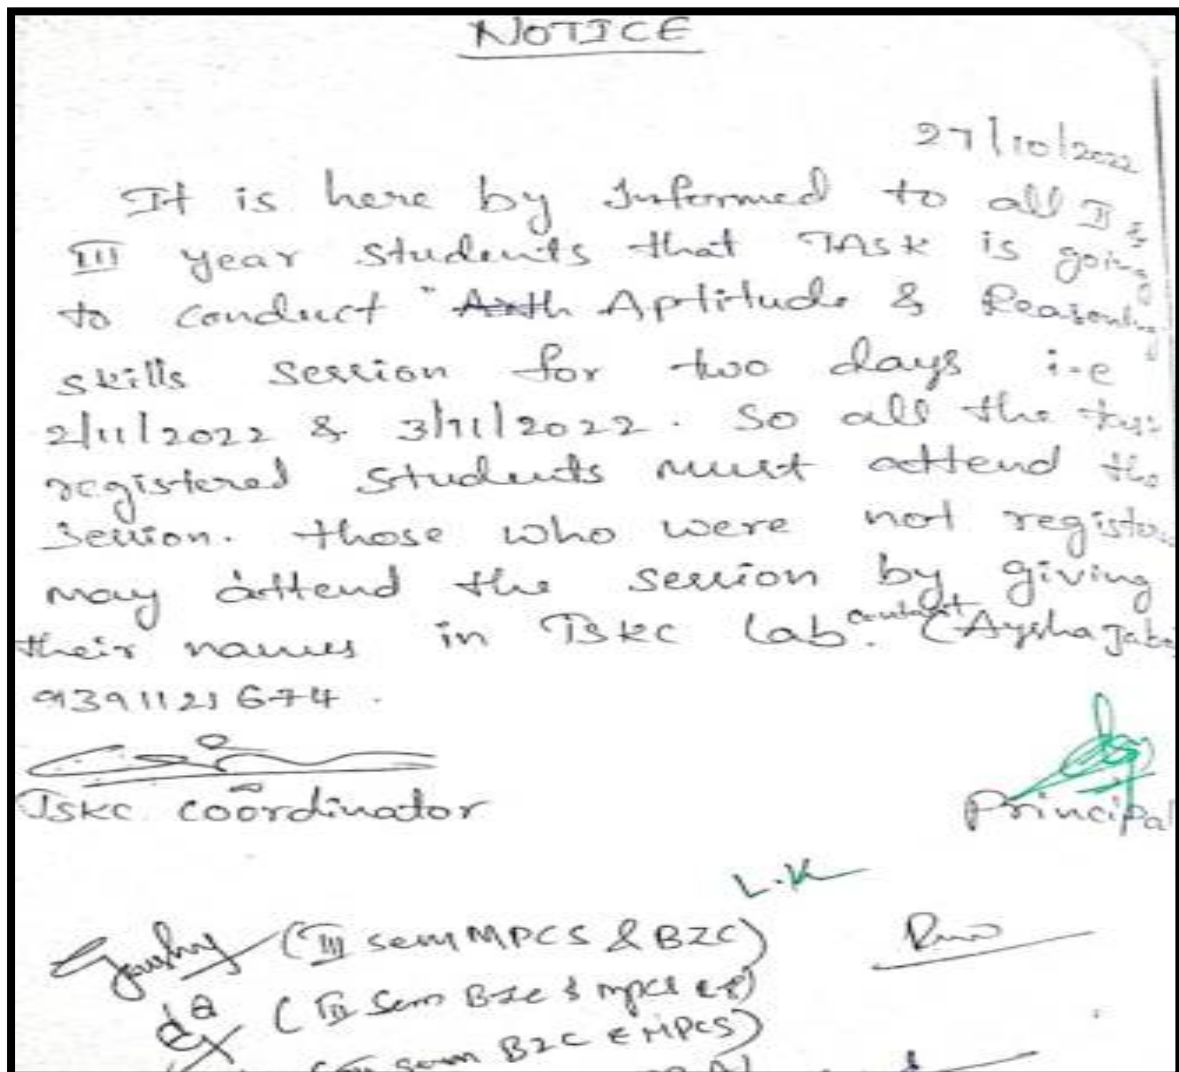 NOTICE
27/10/2022
It is here by Informed to all II &
III year students that TASK is going
to conduct " Aptitude & Reasoning
skills session for two days i-e
2/11/2022 & 3/11/2022. So all the task
registered students must attend the
session. those who were not register
may attend the session by giving
their names in TSKC Lab. contact (Aysha
9391121674.
TSKC coordinator
Principal
L.K
(III sem MPCS & BZC)
Sem BZC & MPCS
sem BZC & MPCS)